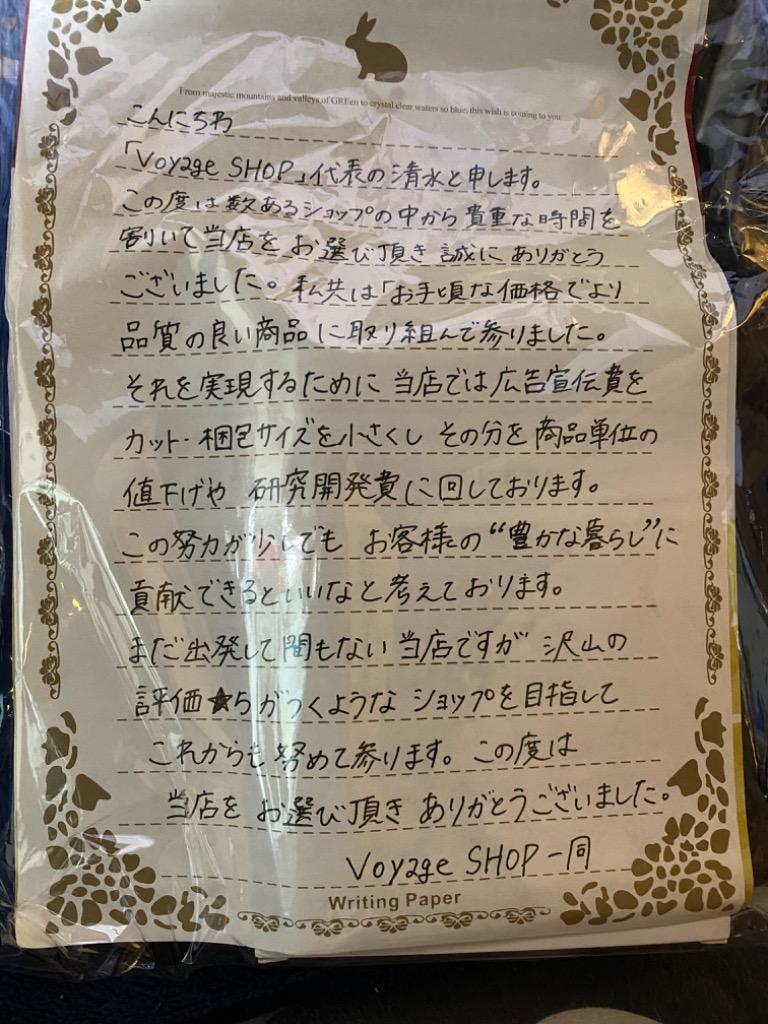 From majestic mountains and valleys of GREen to crystal clear waters so blue, this wish is coming to you
こんにちわ
「Voyage SHOP」代表の清水と申します。
この度は数あるショップの中から貴重な時間を
割いて当店をお選び頂き誠にありがとう
ございました。私共は「お手頃な価格でより
品質の良い商品に取り組んで参りました。
それを実現するために当店では広告宣伝費を
カット・梱包サイズを小さくしその分を商品単位の
値下げや研究開発費に回しております。
この努力が少しでもお客様の“豊かな暮らし”に
貢献できるといいなと考えております。
まだ出発して間もない当店ですが沢山の
評価★5がつくようなショップを目指して
これからも努めて参ります。この度は
当店をお選び頂きありがとうございました。
Voyage SHOP一同
Writing Paper